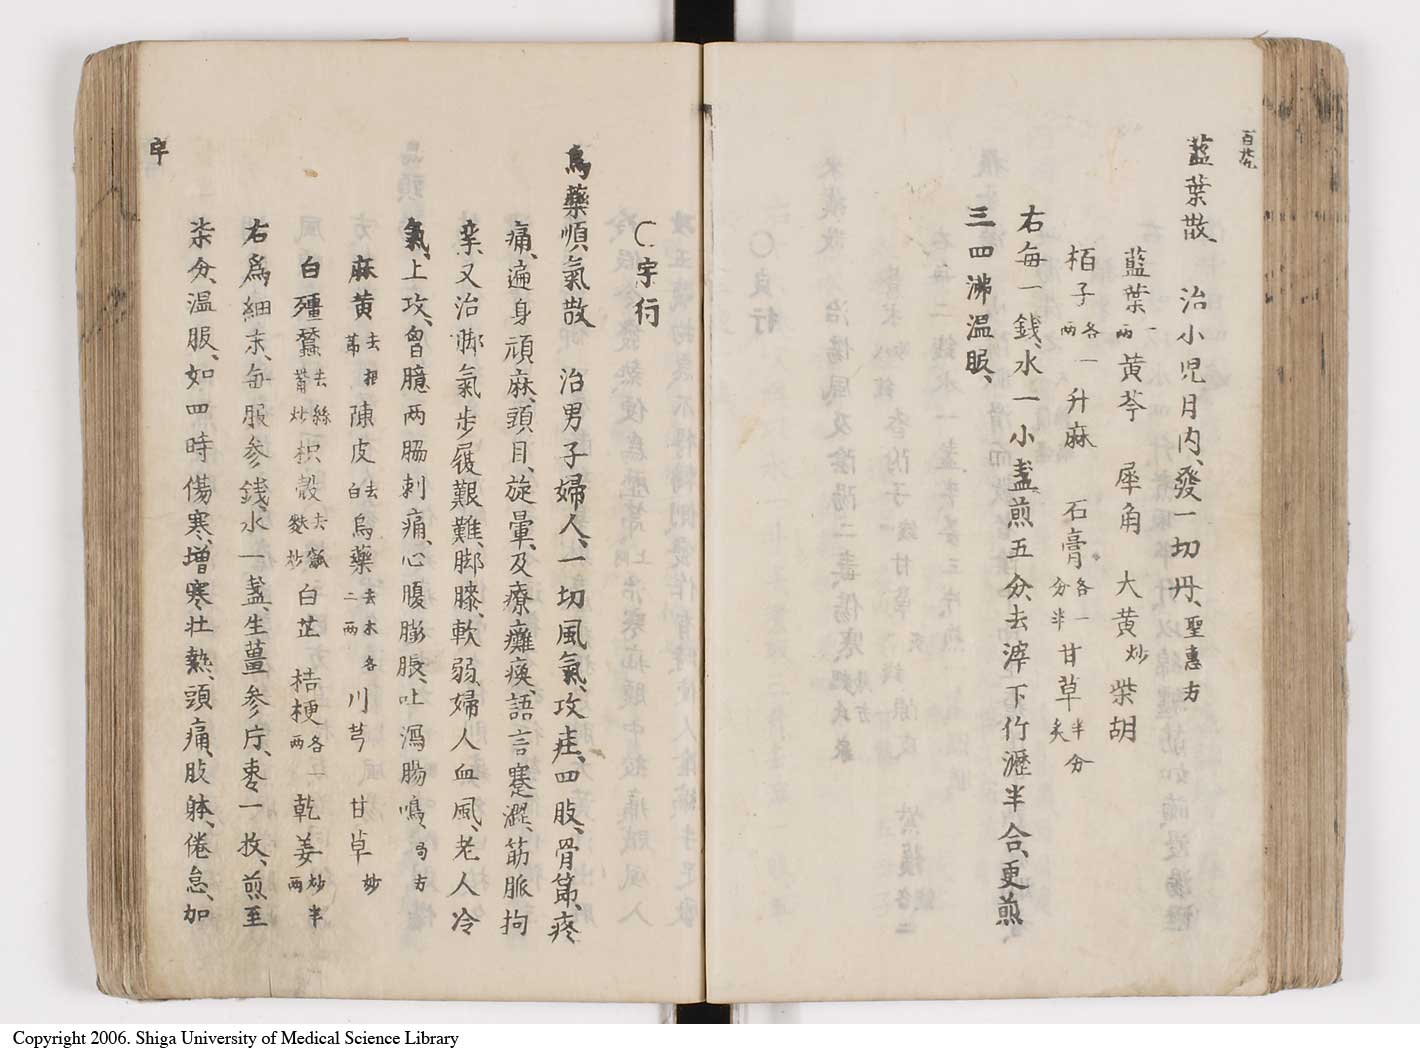 藍葉散　治小児月内、發一切丹、聖惠方
藍葉一两 黄芩 犀角 大黄炒 柴胡
栢子各一两 升麻 石膏各一分半 甘草半分炙
右毎一銭、水一小盞煎五分、去滓下竹瀝半合、更煎
三四沸温服、
〇宇行
烏藥順氣散　治男子婦人、一切風氣、攻疰、四肢、骨節、疼
痛、遍身頑麻、頭目、旋暈、及療癱瘓、語言蹇澀、筋脈拘
挛、又治脚氣步履艱難、脚膝、軟弱、婦人血風、老人冷
氣、上攻、胷臆两脇刺痛、心腹膨脹、吐瀉腸鳴、局方
麻黄去根節 陳皮去白 烏藥去木各二两 川芎 甘草炒
白殭蠶去絲觜炒 枳殼去瓤麩炒 白芷 桔梗各两 乾姜炒半两
右爲細末、毎服参銭、水一盞、生薑参片、枣一枚、煎至
柒分、温服、如四時傷寒、増寒壮熱、頭痛、肢躰、倦怠、加
宇
Copyright 2006. Shiga University of Medical Science Library